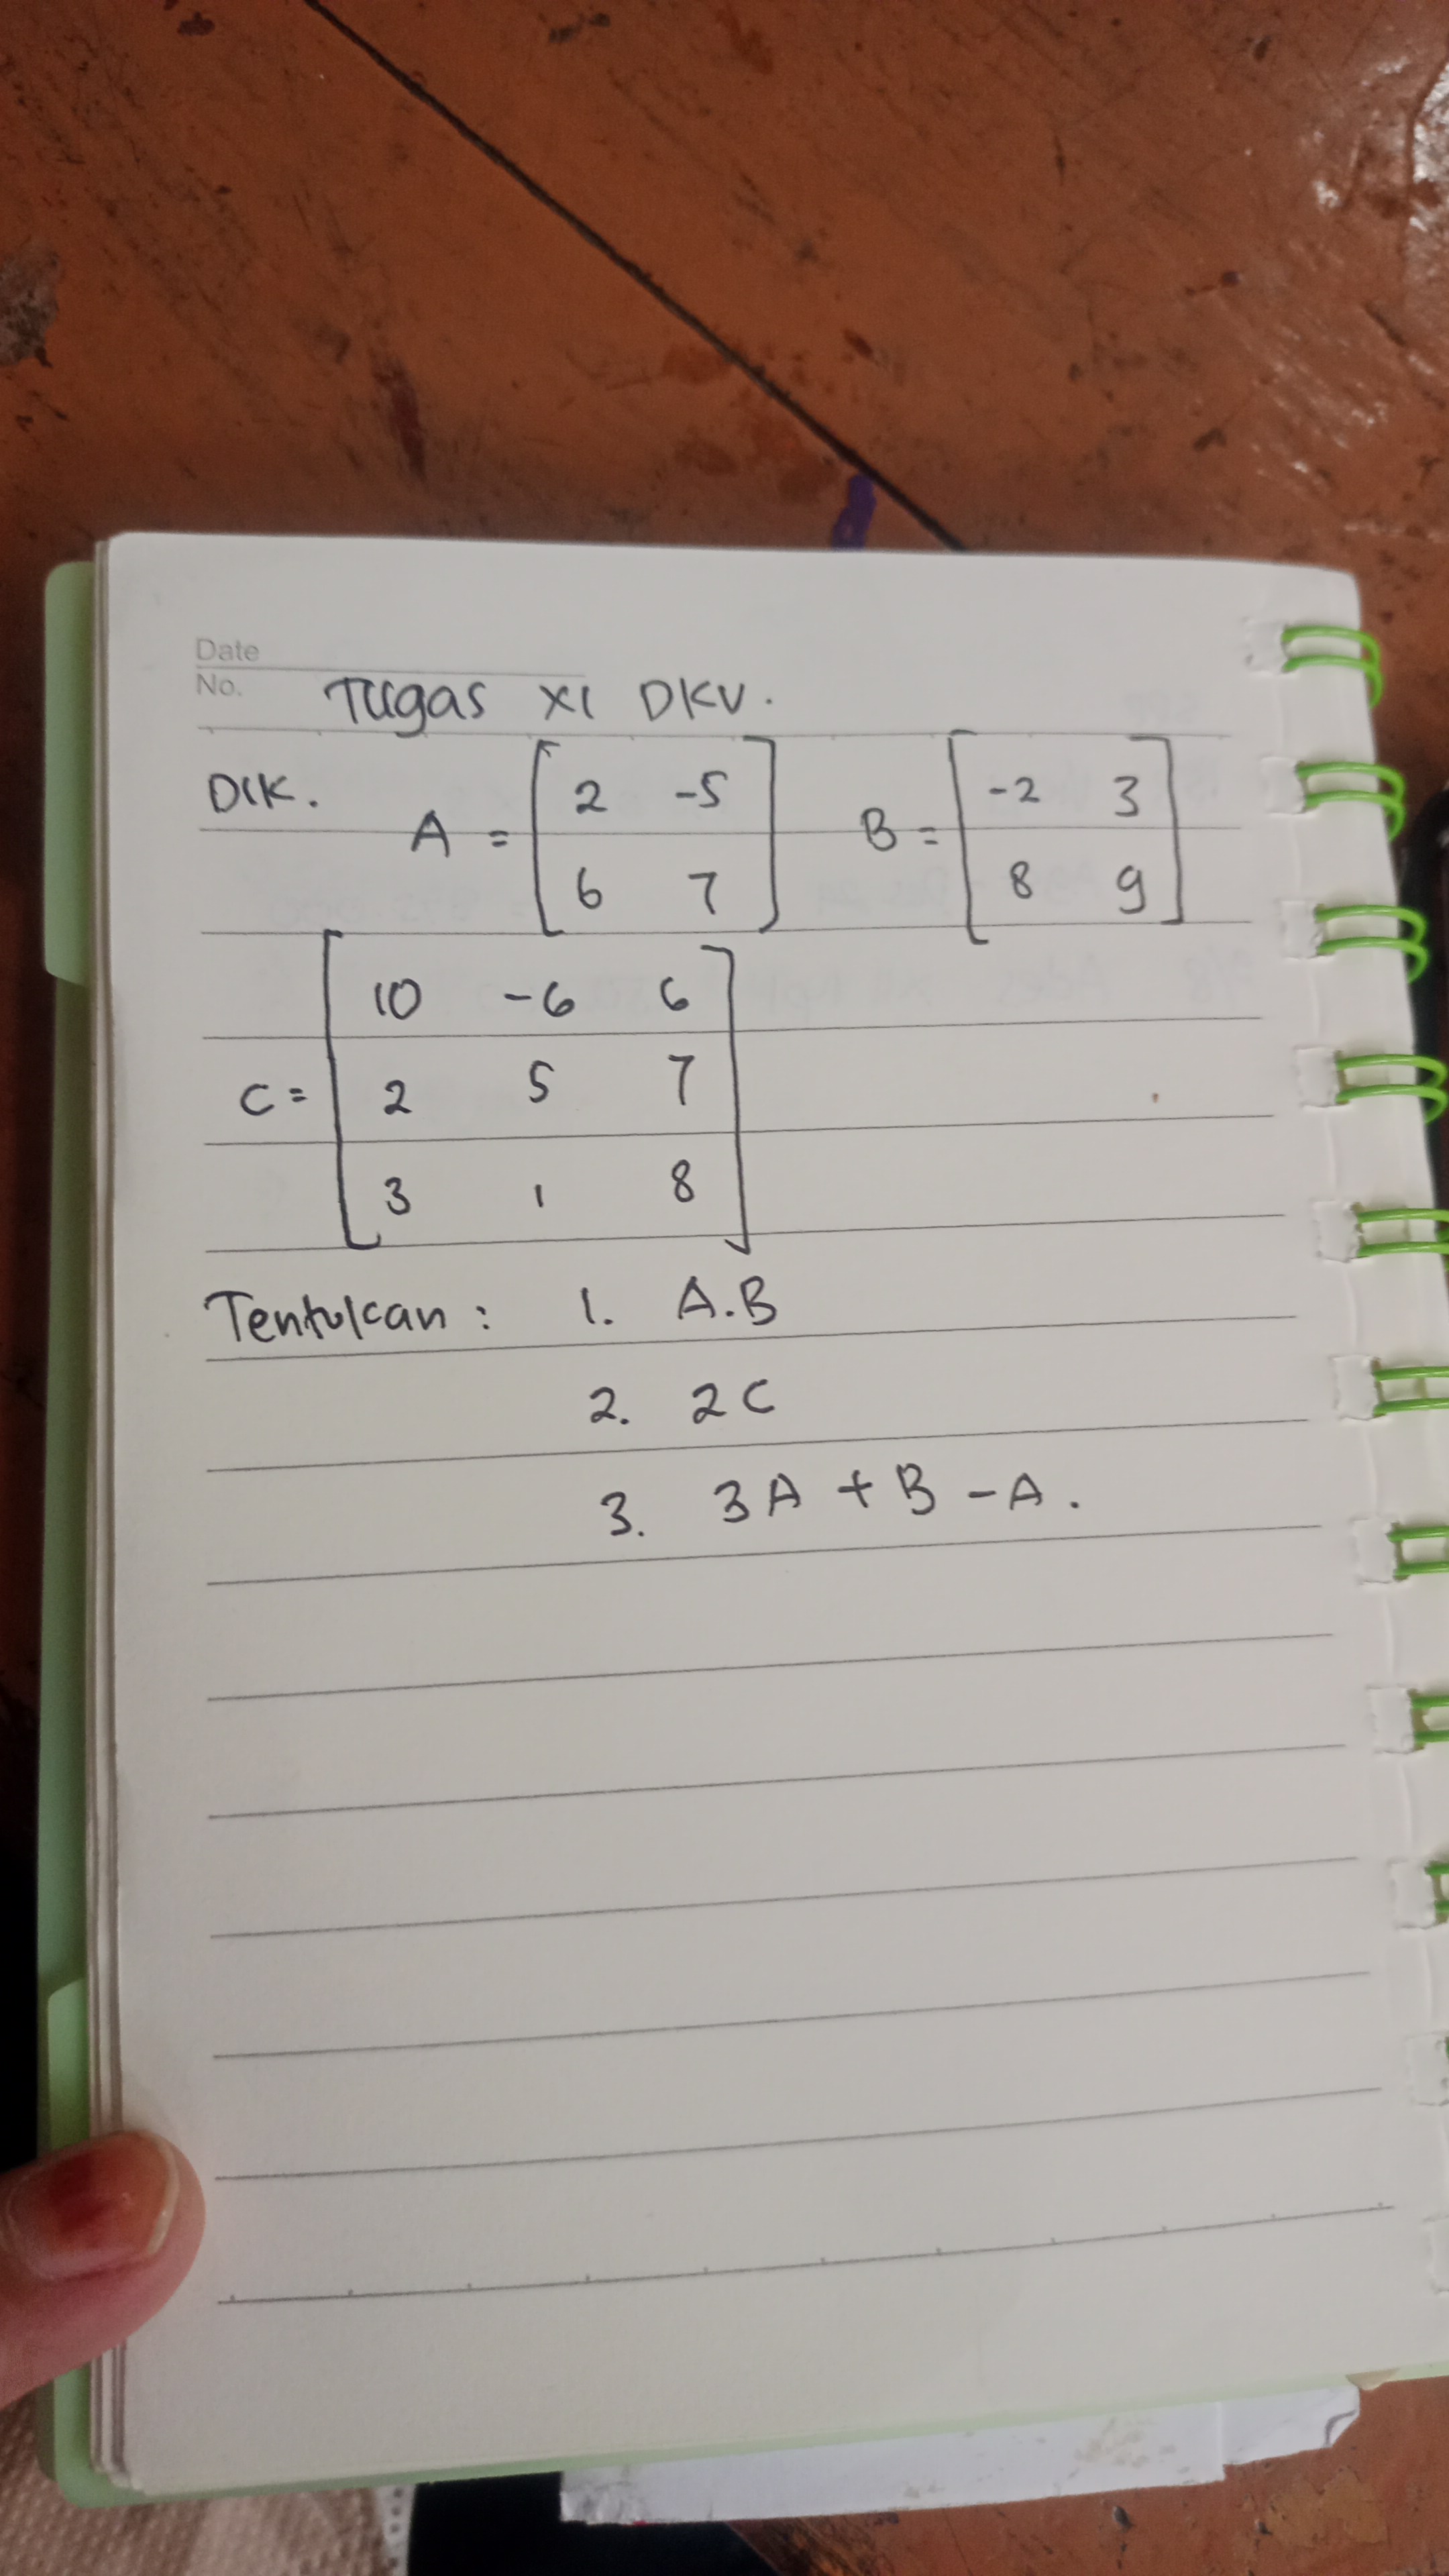 Date
No. Tugas XI DKV.
Dik. A = [ 2 -5
6 7 ] B = [ -2 3
8 9 ]
C = [ 10 -6 6
2 5 7
3 1 8 ]
Tentukan : 1. A.B
2. 2C
3. 3A + B - A.